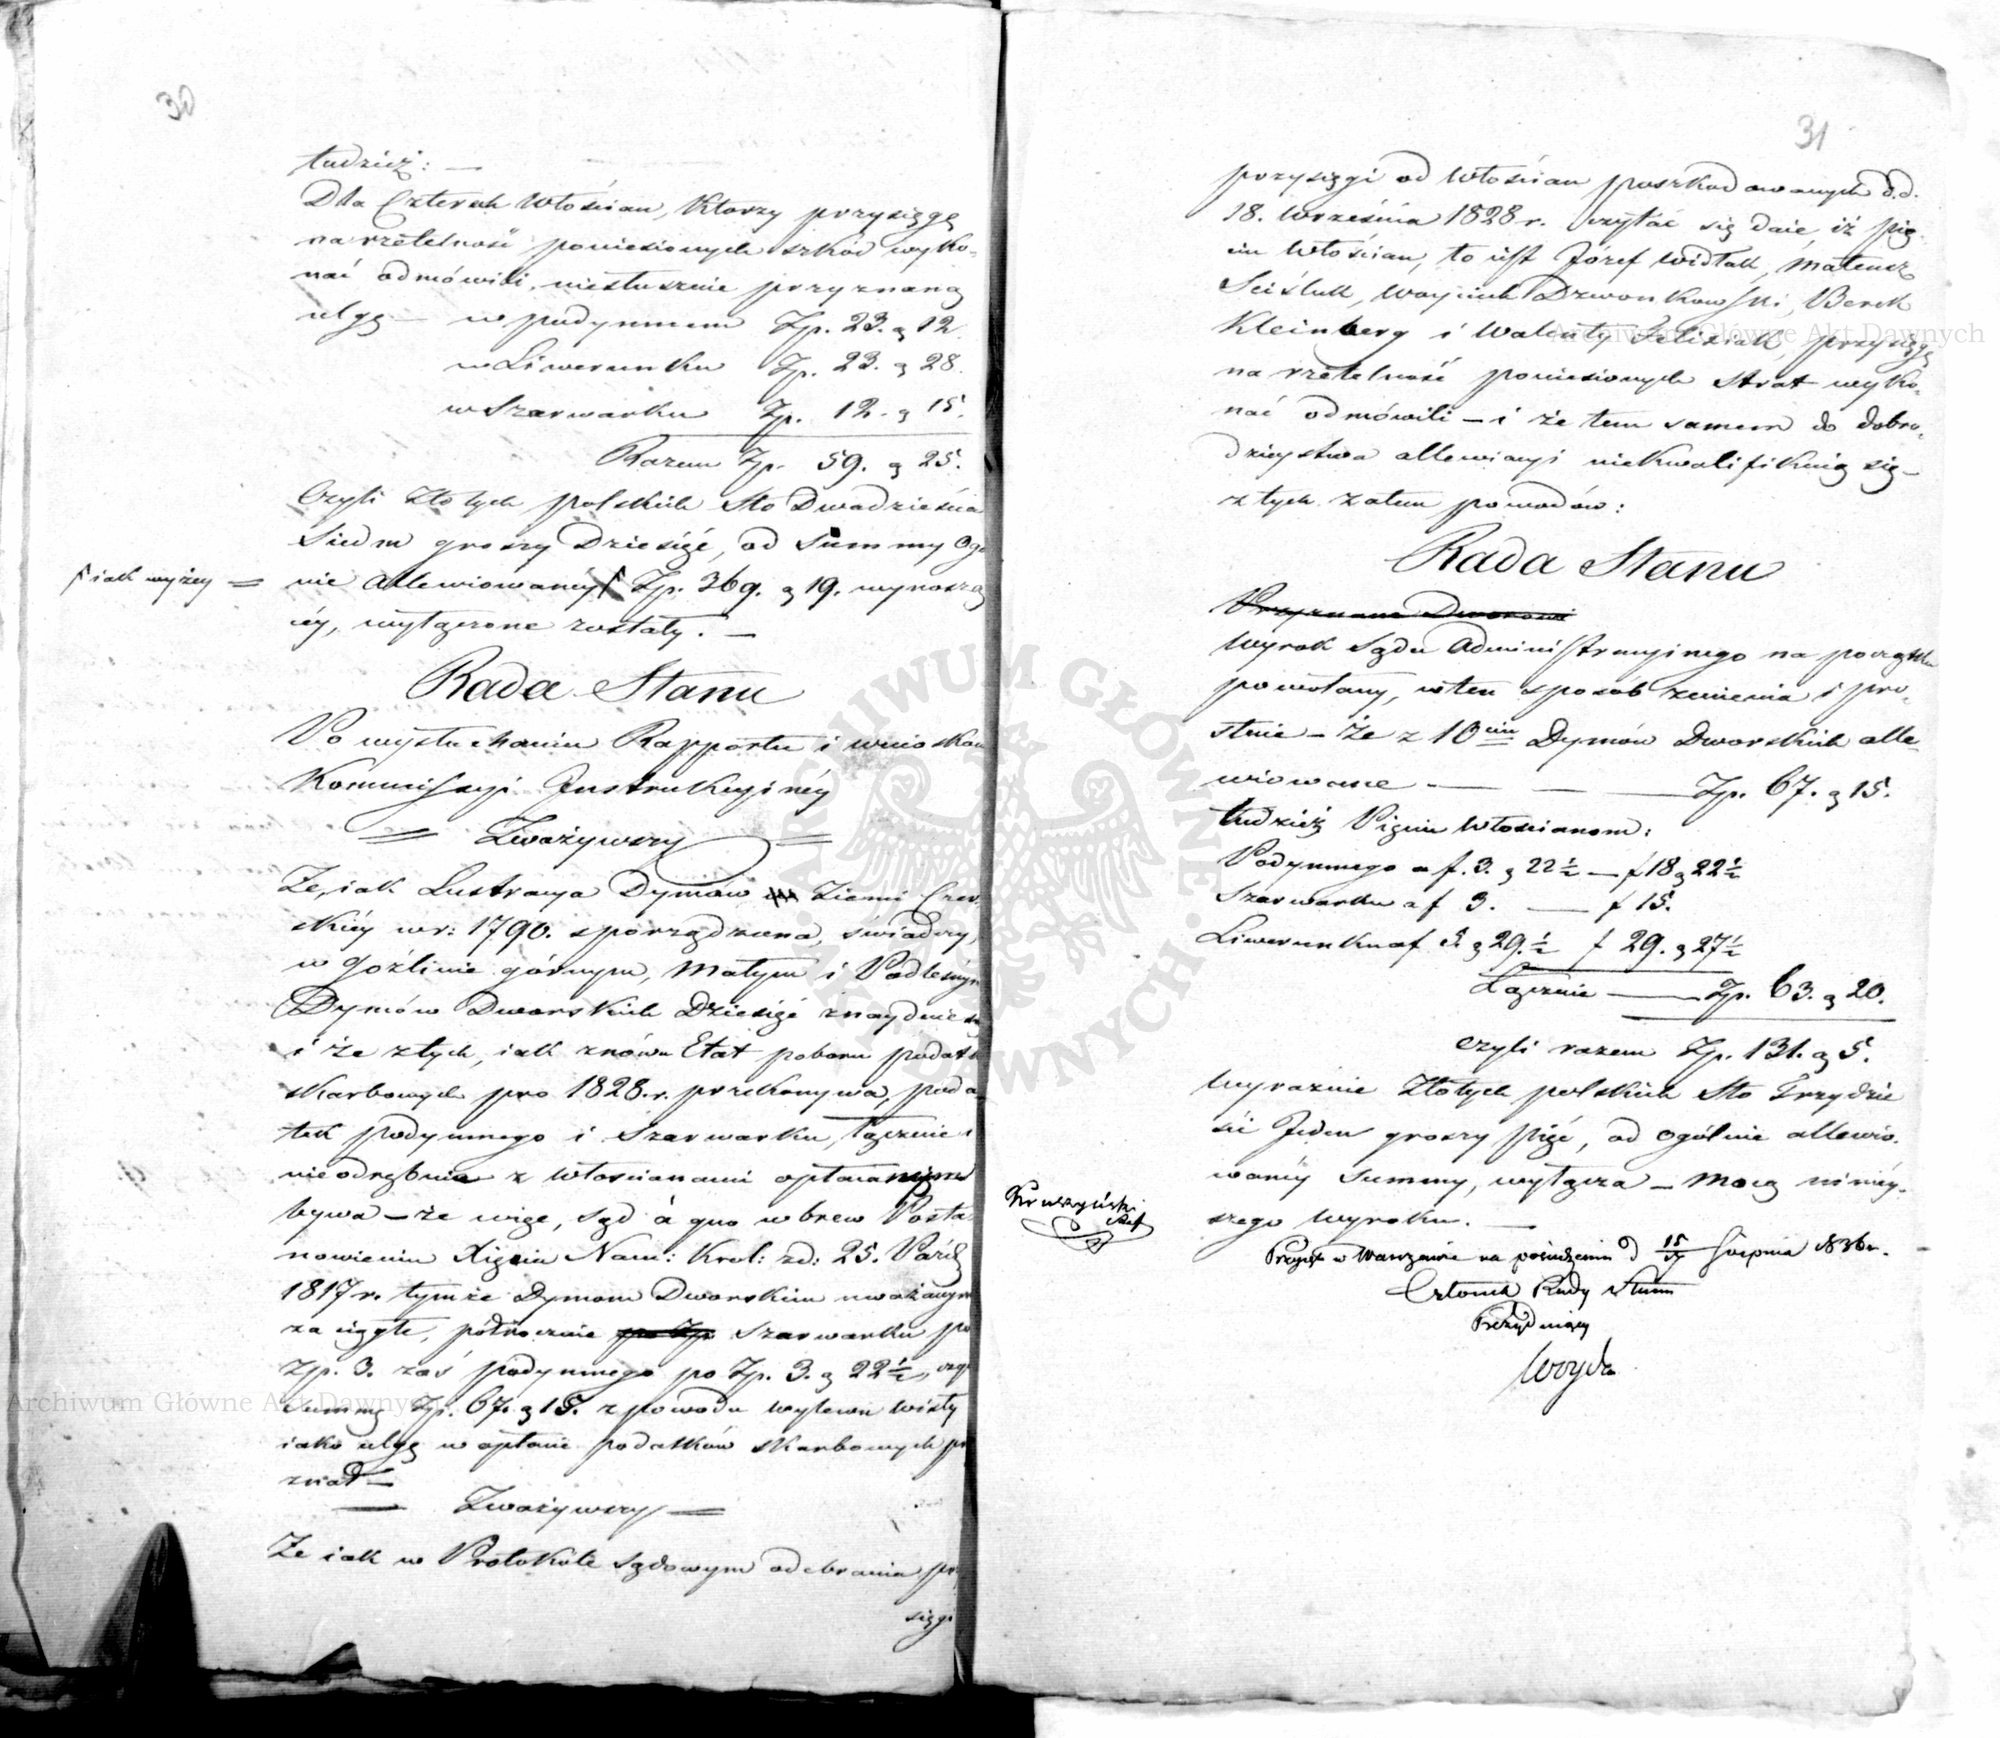 30
tudzież: —
Dla Czterech Włościan, Którzy przysięgę
na rzetelność poniesionych szkód wyko-
nać odmówili, niesłusznie przyznaną
ulgę — w podymnem Zp. 23. g 12.
w Liwerunku Zp. 23. g 28.
w Szarwarku Zp. 12. g 15.
Razem Zp. 59. g 25.
Czyli Złotych polskich Sto Dwadzieścia
Siedm groszy Dziesięć, od Summy Ogó
nie allewiowanéy Zp. 369. g 19. wynoszą
céy, wyłączone zostały. —
iak wyżey =
Rada Stanu
Po wysłuchaniu Rapportu i wniosków
Kommissyi Instrukcyinéy
= Zważywszy =
Że, iak Lustracya Dymów Ziemi Czer
skiéy w r: 1790. sporządzona, świadczy,
w Goźlinie górnym, Małym i Podleśnym
Dymów Dworskich Dziesięć znayduie się
i że z tych, iak znówu Etat poboru podatk
skarbowych pro 1828. r. przekonywa, poda
tek podymnego i Szarwarku, łącznie i
nie odrębnie z Włościanami opłacanym
bywa — że więc, Sąd à quo wbrew Posta
nowieniu Xięcia Nam: Król: z d: 25. Paźdz
1817 r. tymże Dymom Dworskim uważanym
za ciągłe, półrocznie po Zp. Szarwarku po
Zp. 3. zaś podymnego po Zp. 3. g 22½, czy
Summę Zp. 67. g 15. z powodu wylewu Wisły
iako ulgę w opłacie podatków skarbowych prz
znał —
— Zważywszy =
Że iak w Protokóle Sądowym odebrania przy
sięgi
31
przysięgi od Włościan poszkodowanych d.d.
18. Września 1828 r. czytać się daie, iż pię-
ciu Włościan, to iest Józef Widłak, Mateusz
Sciślak, Woyciech Dzwonkowski, Berek
Kleinberg i Walenty Feliziak, przysięgę
na rzetelność poniesionych strat wyko-
nać odmówili — i że tem samem do dobro-
dzieystwa allewiacyi niekwalifikuią się —
z tych zatem powodów:
Rada Stanu
Przyznane Dworowi
Wyrok Sądu Administracyinego na początku
powołany, w ten sposób zmienia i pro-
stuie — Że z 10ciu Dymów Dworskich alle-
wiowane — — — Zp. 67. g 15.
tudzież Pięciu Włościanom:
Podymnego a f. 3. g 22½ — f 18 g 22½
Szarwarku a f 3. — f 15.
Liwerunku a f 5. g 29.½ f 29. g 27½
Łącznie — Zp. 63. g 20.
czyli razem Zp. 131. g 5.
Wyraźnie Złotych polskich Sto Trzydzie
ści Jeden groszy pięć, od ogólnie allewio-
wanéy Summy, wyłącza — Mocą niniéy-
szego Wyroku. —
Przyięto w Warszawie na posiedzeniu d 15/27 Sierpnia 1836 r.
Członek Rady Stanu
Prezyduiący
Woyda
Archiwum Główne Akt Dawnych
Archiwum Główne Akt Dawnych
ARCHIWUM GŁÓWNE AKT DAWNYCH